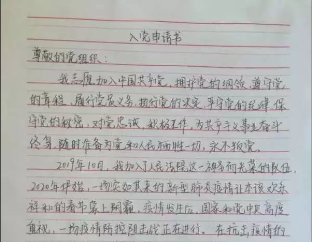 入党申请书
尊敬的党组织：
我志愿加入中国共产党，拥护党的纲领，遵守党
的章程，履行党员义务，执行党的决定，严守党的纪律，保
守党的秘密，对党忠诚，积极工作，为共产主义事业奋斗
终身，随时准备为党和人民牺牲一切，永不叛党。
2019年10月，我加入了人民法院这一神圣而光荣的队伍，
2020年伊始，一场突如其来的新型肺炎疫情让本该欢乐
祥和的春节蒙上阴霾，疫情发生后，国家和党中央高度
重视，一场疫情防控阻击战正在进行。在抗击疫情的